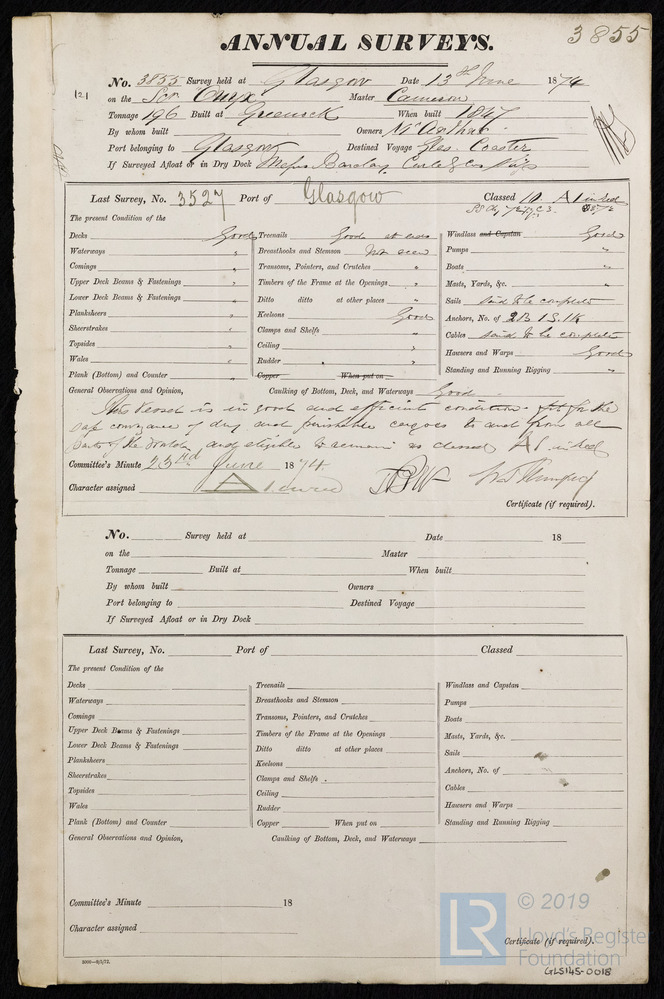 3855
ANNUAL SURVEYS.
No. 3855 Survey held at Glasgow Date 13th June 1874
121
on the Scr Onyx Master Cameron
Tonnage 196 Built at Greenock When built 1847
By whom built Owners McArthur
Port belonging to Glasgow Destined Voyage Glas. Coaster
If Surveyed Afloat or in Dry Dock Messrs Barclay, Curle & Cos Slip
Last Survey, No. 3527 Port of Glasgow Classed 10 A1 in red
The present Condition of the
Decks Good
Waterways "
Comings "
Upper Deck Beams & Fastenings "
Lower Deck Beams & Fastenings "
Planksheers "
Sheerstrakes "
Topsides "
Wales "
Plank (Bottom) and Counter "
Treenails Good at ends
Breasthooks and Stemson Not seen
Transoms, Pointers, and Crutches "
Timbers of the Frame at the Openings "
Ditto ditto at other places "
Keelsons Good
Clamps and Shelfs "
Ceiling "
Rudder "
Copper When put on
Windlass and Capstan Good
Pumps "
Boats "
Masts, Yards, &c. "
Sails said to be complete
Anchors, No. of 2B 1S. 1K
Cables said to be complete
Hawsers and Warps Good
Standing and Running Rigging "
General Observations and Opinion, Caulking of Bottom, Deck, and Waterways Good
This Vessel is in good and efficient condition fit for the
safe conveyance of dry and perishable cargoes to and from all
parts of the World and eligible to remain as classed A1 in red
Committee's Minute 23rd June 1874
Character assigned in red
Certificate (if required).
No. Survey held at Date 18
on the Master
Tonnage Built at When built
By whom built Owners
Port belonging to Destined Voyage
If Surveyed Afloat or in Dry Dock
Last Survey, No. Port of Classed
The present Condition of the
Decks
Waterways
Comings
Upper Deck Beams & Fastenings
Lower Deck Beams & Fastenings
Planksheers
Sheerstrakes
Topsides
Wales
Plank (Bottom) and Counter
Treenails
Breasthooks and Stemson
Transoms, Pointers, and Crutches
Timbers of the Frame at the Openings
Ditto ditto at other places
Keelsons
Clamps and Shelfs
Ceiling
Rudder
Copper When put on
Windlass and Capstan
Pumps
Boats
Masts, Yards, &c.
Sails
Anchors, No. of
Cables
Hawsers and Warps
Standing and Running Rigging
General Observations and Opinion, Caulking of Bottom, Deck, and Waterways
Committee's Minute 18
Character assigned
Certificate (if required).
LR © 2019
Lloyd's Register
Foundation
GLS145-0018